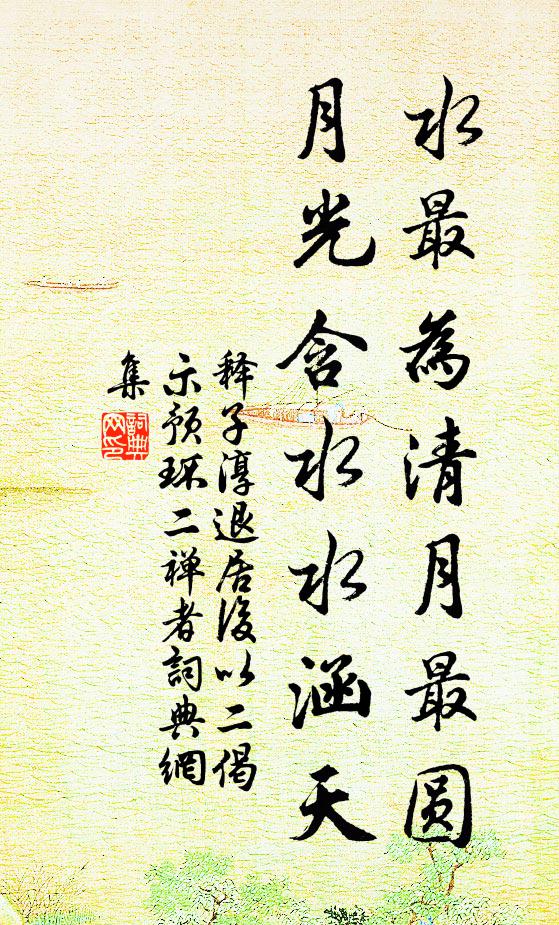 水最為清月最圆
月光含水水涵天
释子淳退居後以二偈
示预环二禅者詞典網
集
詞典
网印